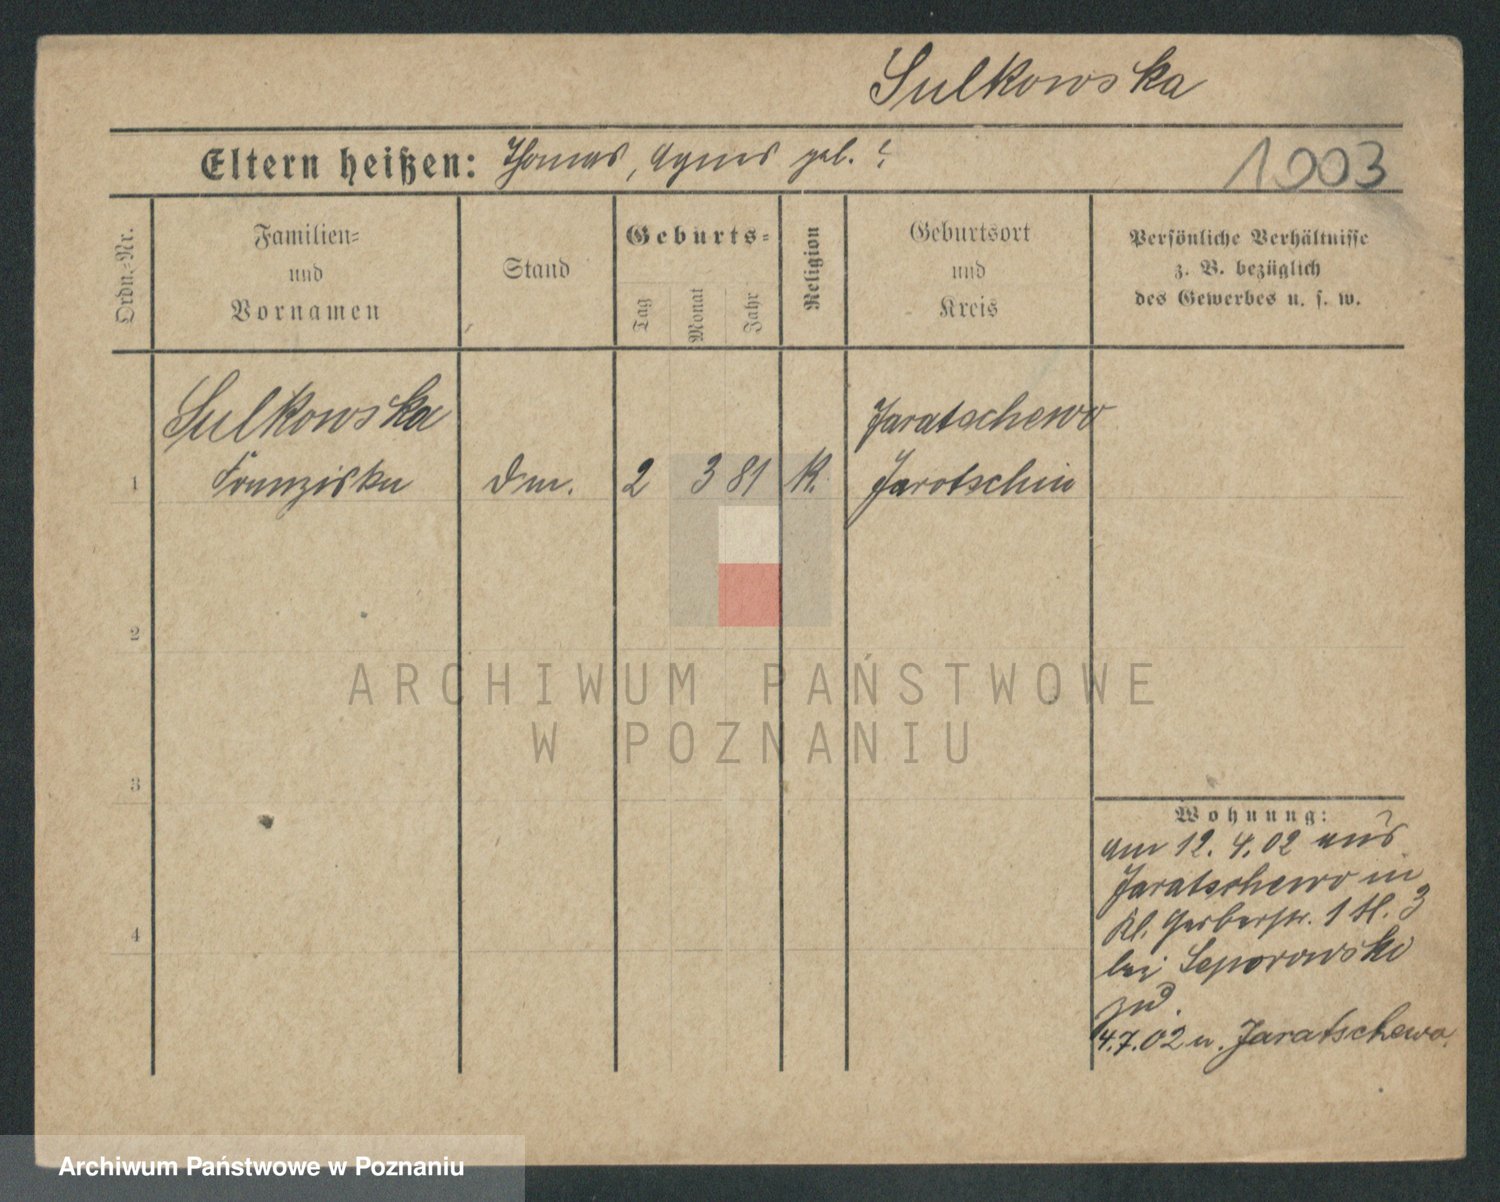 Sulkowska
Eltern heißen: Thomas, Agnes geb. ?
1903
Ordn.-Nr.
Familien-
und
Vornamen
Stand
Geburts-
Tag
Monat
Jahr
Religion
Geburtsort
und
Kreis
Persönliche Verhältnisse
z. B. bezüglich
des Gewerbes u. s. w.
Sulkowska
Jaratschewo
1 Franziska 2 3 81 K. Jarotschin
2
ARCHIWUM PAŃSTWOWE
W POZNANIU
3
Wohnung:
am 12. 4. 02 aus
Jaratschewo in
Kl. Gerberstr. 1 H. 3
4
bei Seporowski
zud.
4.7.02 n. Jaratschewo.
Archiwum Państwowe w Poznaniu